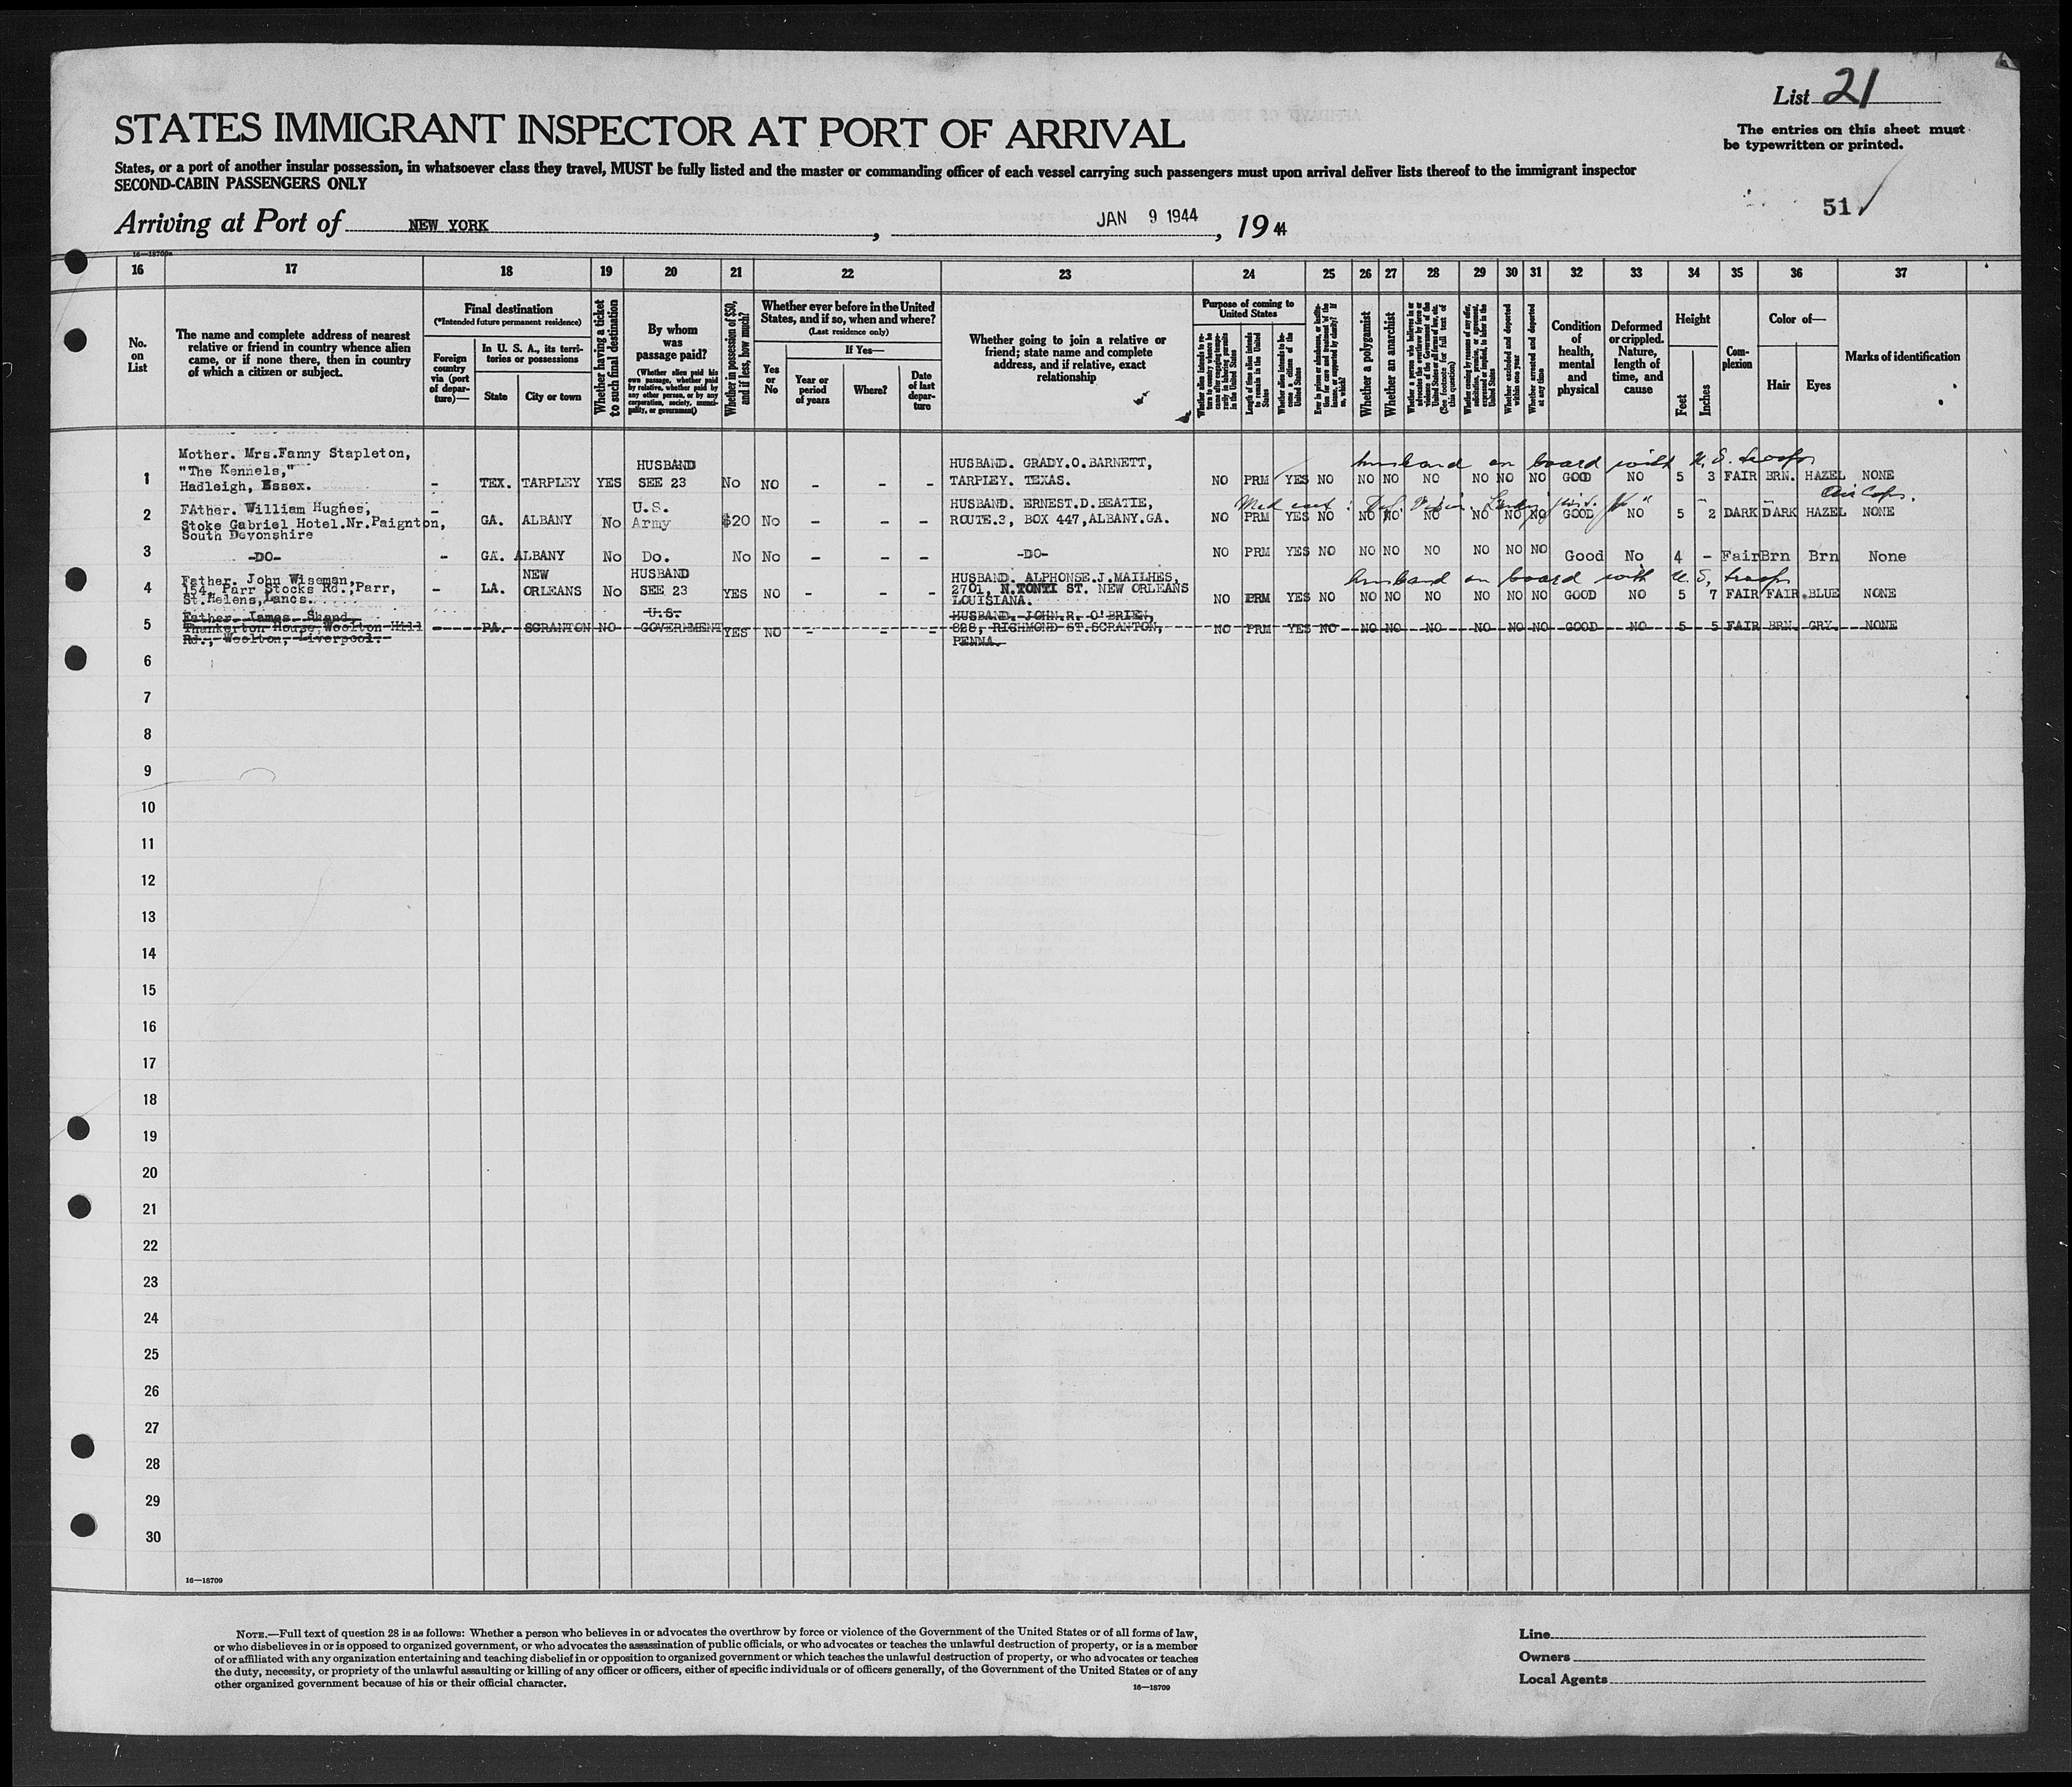 List 21
STATES IMMIGRANT INSPECTOR AT PORT OF ARRIVAL
The entries on this sheet must be typewritten or printed.
States, or a port of another insular possession, in whatsoever class they travel, MUST be fully listed and the master or commanding officer of each vessel carrying such passengers must upon arrival deliver lists thereof to the immigrant inspector
SECOND-CABIN PASSENGERS ONLY
51
Arriving at Port of NEW YORK, JAN 9 1944, 19 44
16—18709a
16 17 18 19 20 21 22 23 24 25 26 27 28 29 30 31 32 33 34 35 36 37
No. on List
The name and complete address of nearest relative or friend in country whence alien came, or if none there, then in country of which a citizen or subject.
Final destination
(*Intended future permanent residence)
Foreign country via (port of departure)—
In U. S. A., its territories or possessions
State
City or town
Whether having a ticket to such final destination
By whom was passage paid?
(Whether alien paid his own passage, whether paid by relative, whether paid by any other person, or by any corporation, society, municipality, or government)
Whether in possession of $50, and if less, how much?
Whether ever before in the United States, and if so, when and where?
(Last residence only)
Yes or No
If Yes—
Year or period of years
Where?
Date of last departure
Whether going to join a relative or friend; state name and complete address, and if relative, exact relationship
Purpose of coming to United States
Length of time alien intends to remain in the United States
Whether alien intends to become a citizen of the United States
Whether a polygamist
Whether an anarchist
Whether excluded and deported within one year
Whether arrested and deported at any time
Condition of health, mental and physical
Deformed or crippled. Nature, length of time, and cause
Height
Feet
Inches
Complexion
Color of—
Hair
Eyes
Marks of identification
husband on board with U.S. troops
1 Mother. Mrs.Fanny Stapleton, "The Kennels," Hadleigh, Essex. - TEX. TARPLEY YES HUSBAND SEE 23 No NO - - - HUSBAND. GRADY.O.BARNETT, TARPLEY. TEXAS. NO PRM YES NO NO NO NO NO NO NO GOOD NO 5 3 FAIR BRN. HAZEL NONE
Air Corps.
2 FAther. William Hughes, Stoke Gabriel Hotel.Nr.Paignton, South Devonshire - GA. ALBANY No U.S. Army $20 No - - - HUSBAND. ERNEST.D.BEATIE, ROUTE.3, BOX 447,ALBANY.GA. NO PRM YES NO NO NO NO NO NO NO GOOD NO 5 2 DARK DARK HAZEL NONE
3 -DO- - GA. ALBANY No Do. No No - - - -DO- NO PRM YES NO NO NO NO NO NO NO Good No 4 - Fair Brn Brn None
husband on board with U.S. troops
4 Father. John Wiseman, 154, Parr Stocks Rd.,Parr, St.Helens,Lancs. - LA. NEW ORLEANS No HUSBAND SEE 23 YES NO - - - HUSBAND. ALPHONSE.J.MAILHES, 2701, N.TONTI ST. NEW ORLEANS LOUISIANA. NO PRM YES NO NO NO NO NO NO NO GOOD NO 5 7 FAIR FAIR BLUE NONE
5 Father. James. Shand. Thankerton House,Woolton Hill Rd., Woolton, Liverpool. - PA. SCRANTON NO U.S. GOVERNMENT YES NO - - - HUSBAND. JOHN.R. O'BRIEN, 828, RICHMOND ST.SCRANTON, PENNA. NO PRM YES NO NO NO NO NO NO NO GOOD NO 5 5 FAIR BRN. GRY. NONE
6
7
8
9
10
11
12
13
14
15
16
17
18
19
20
21
22
23
24
25
26
27
28
29
30
16—18709
NOTE.—Full text of question 28 is as follows: Whether a person who believes in or advocates the overthrow by force or violence of the Government of the United States or of all forms of law,
or who disbelieves in or is opposed to organized government, or who advocates the assassination of public officials, or who advocates or teaches the unlawful destruction of property, or is a member
of or affiliated with any organization entertaining and teaching disbelief in or opposition to organized government or which teaches the unlawful destruction of property, or who advocates or teaches
the duty, necessity, or propriety of the unlawful assaulting or killing of any officer or officers, either of specific individuals or of officers generally, of the Government of the United States or of any
other organized government because of his or their official character.
16—18709
Line
Owners
Local Agents